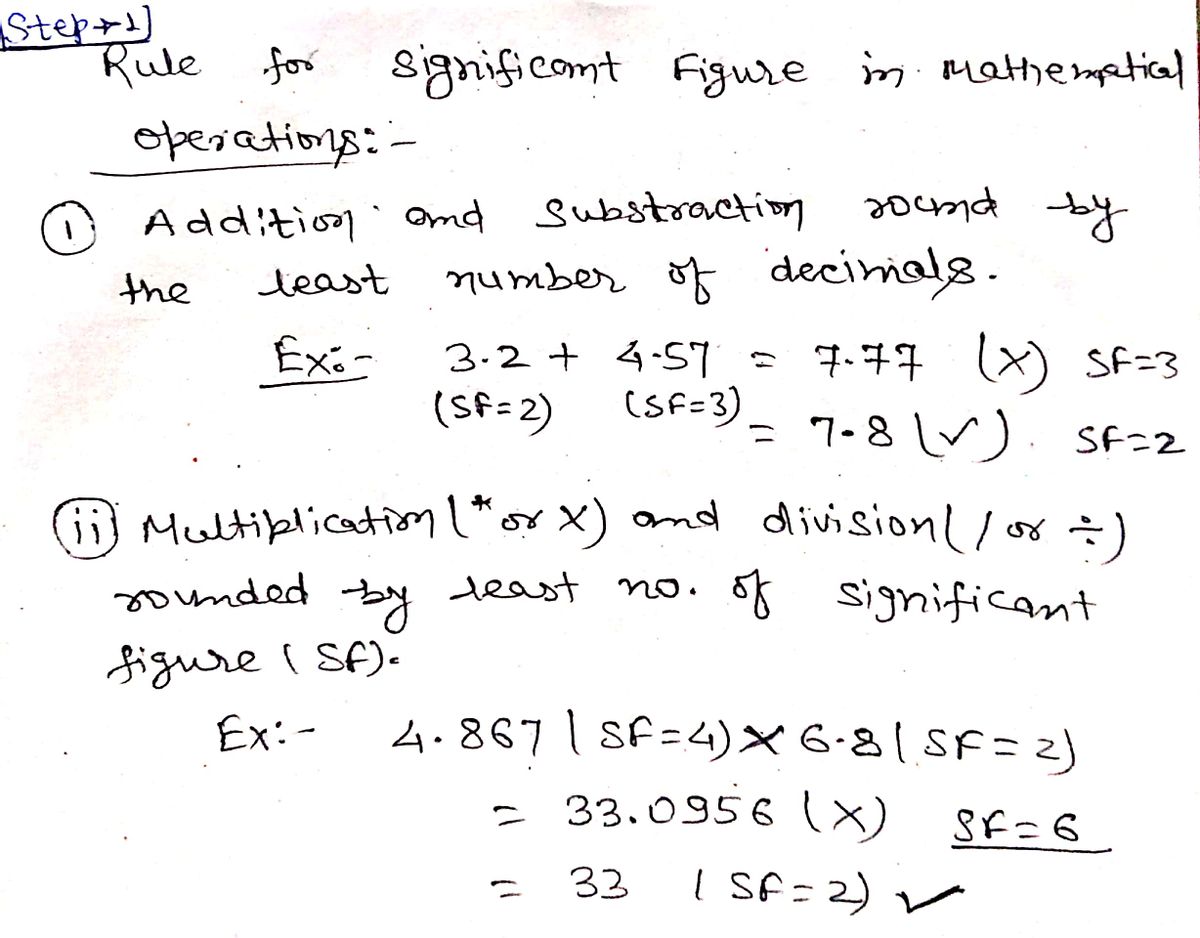 Step→1]
Rule for Significant Figure in Mathematical
operations:-
(i) Addition and Substraction round by
the least number of decimals.
Ex:- 3.2 + 4.57 = 7.77 (×) SF=3
(SF=2) (SF=3) = 7.8 (✓). SF=2
(ii) Multiplication (* or ×) and division (/ or ÷)
rounded by least no. of significant
figure (SF).
Ex:- 4.867 (SF=4) × 6.8 (SF=2)
= 33.0956 (×) SF=6
= 33 (SF=2) ✓